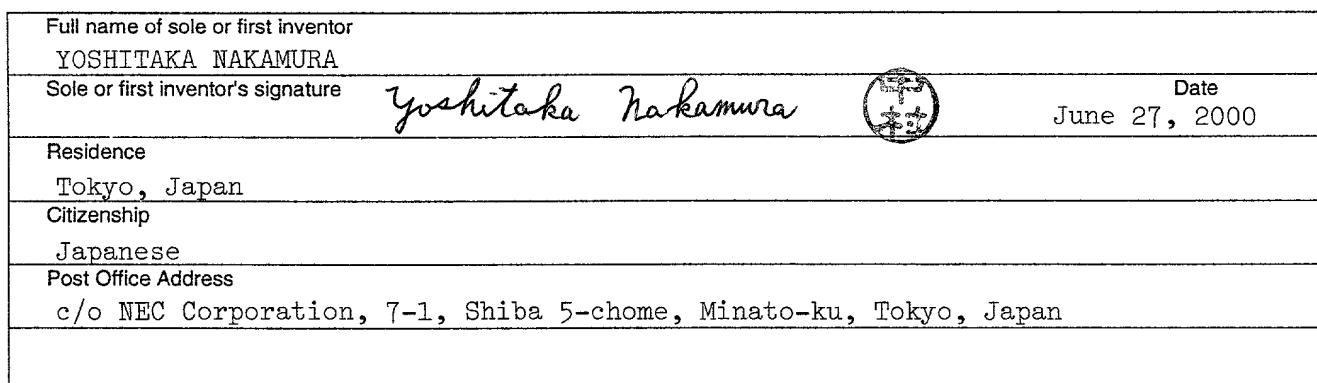 Full name of sole or first inventor
YOSHITAKA NAKAMURA
Sole or first inventor's signature
Yoshitaka Nakamura
中村
Date
June 27, 2000
Residence
Tokyo, Japan
Citizenship
Japanese
Post Office Address
c/o NEC Corporation, 7-1, Shiba 5-chome, Minato-ku, Tokyo, Japan